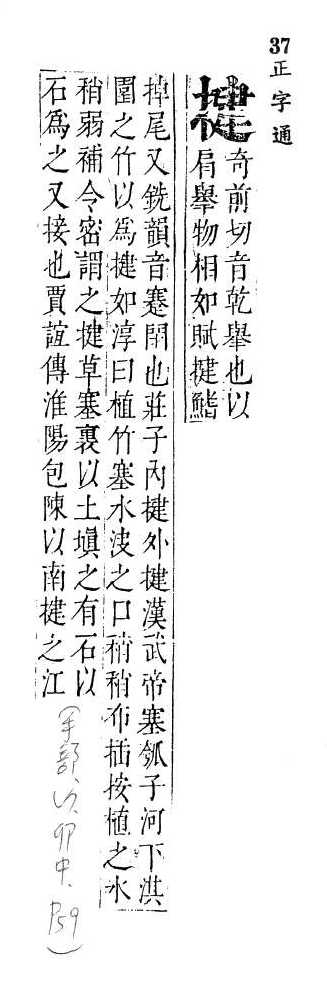 37
正字通
揵
奇前切音乾舉也以
肩舉物相如賦揵鰭
掉尾又銑韻音蹇閉也莊子內揵外揵漢武帝塞瓠子河下淇
圍之竹以爲揵如淳曰植竹塞水波之口稍稍布插按植之水
稍弱補令密謂之揵草塞裏以土塡之有石以
石爲之又接也賈誼傳淮陽包陳以南揵之江
(手部、卯中、P59)